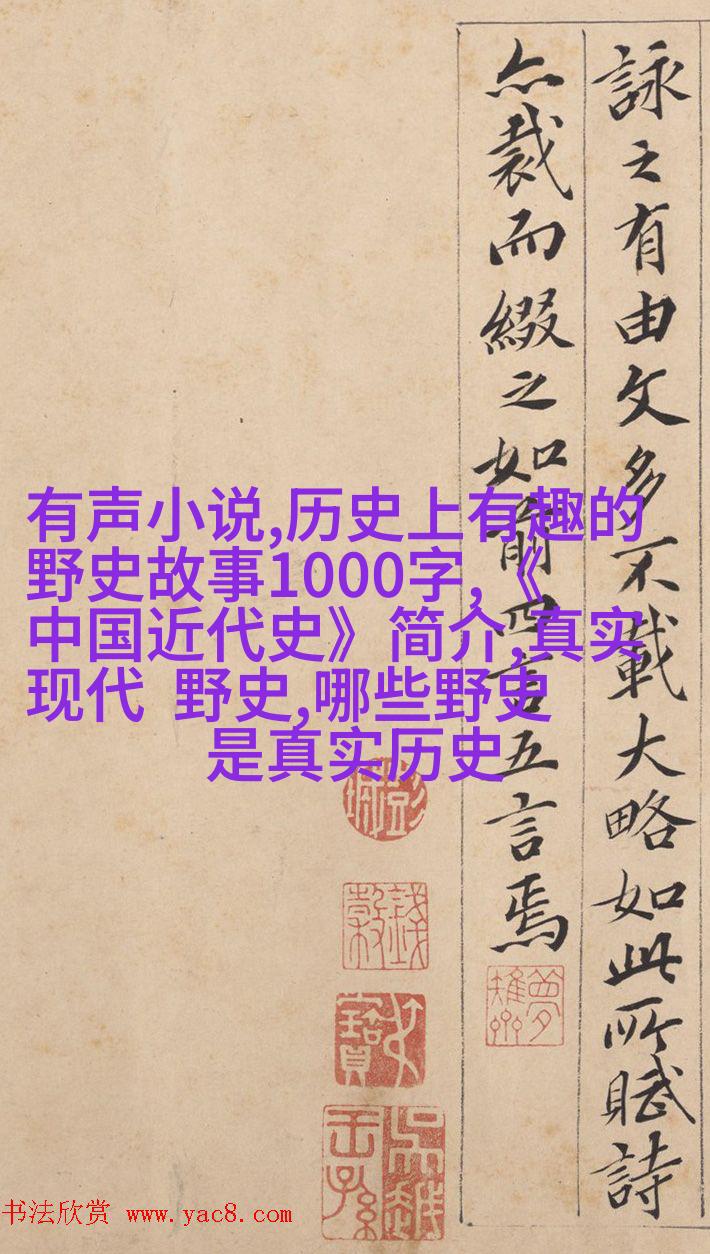 詠之有由文多不載大略如此所賦詩
亦裁而綴之如前四言五言焉
有声小说,历史上有趣的
野史故事1000字,《
中国近代史》简介,真实
现代 野史,哪些野史
是真实历史
书法欣赏 www.yac8.com